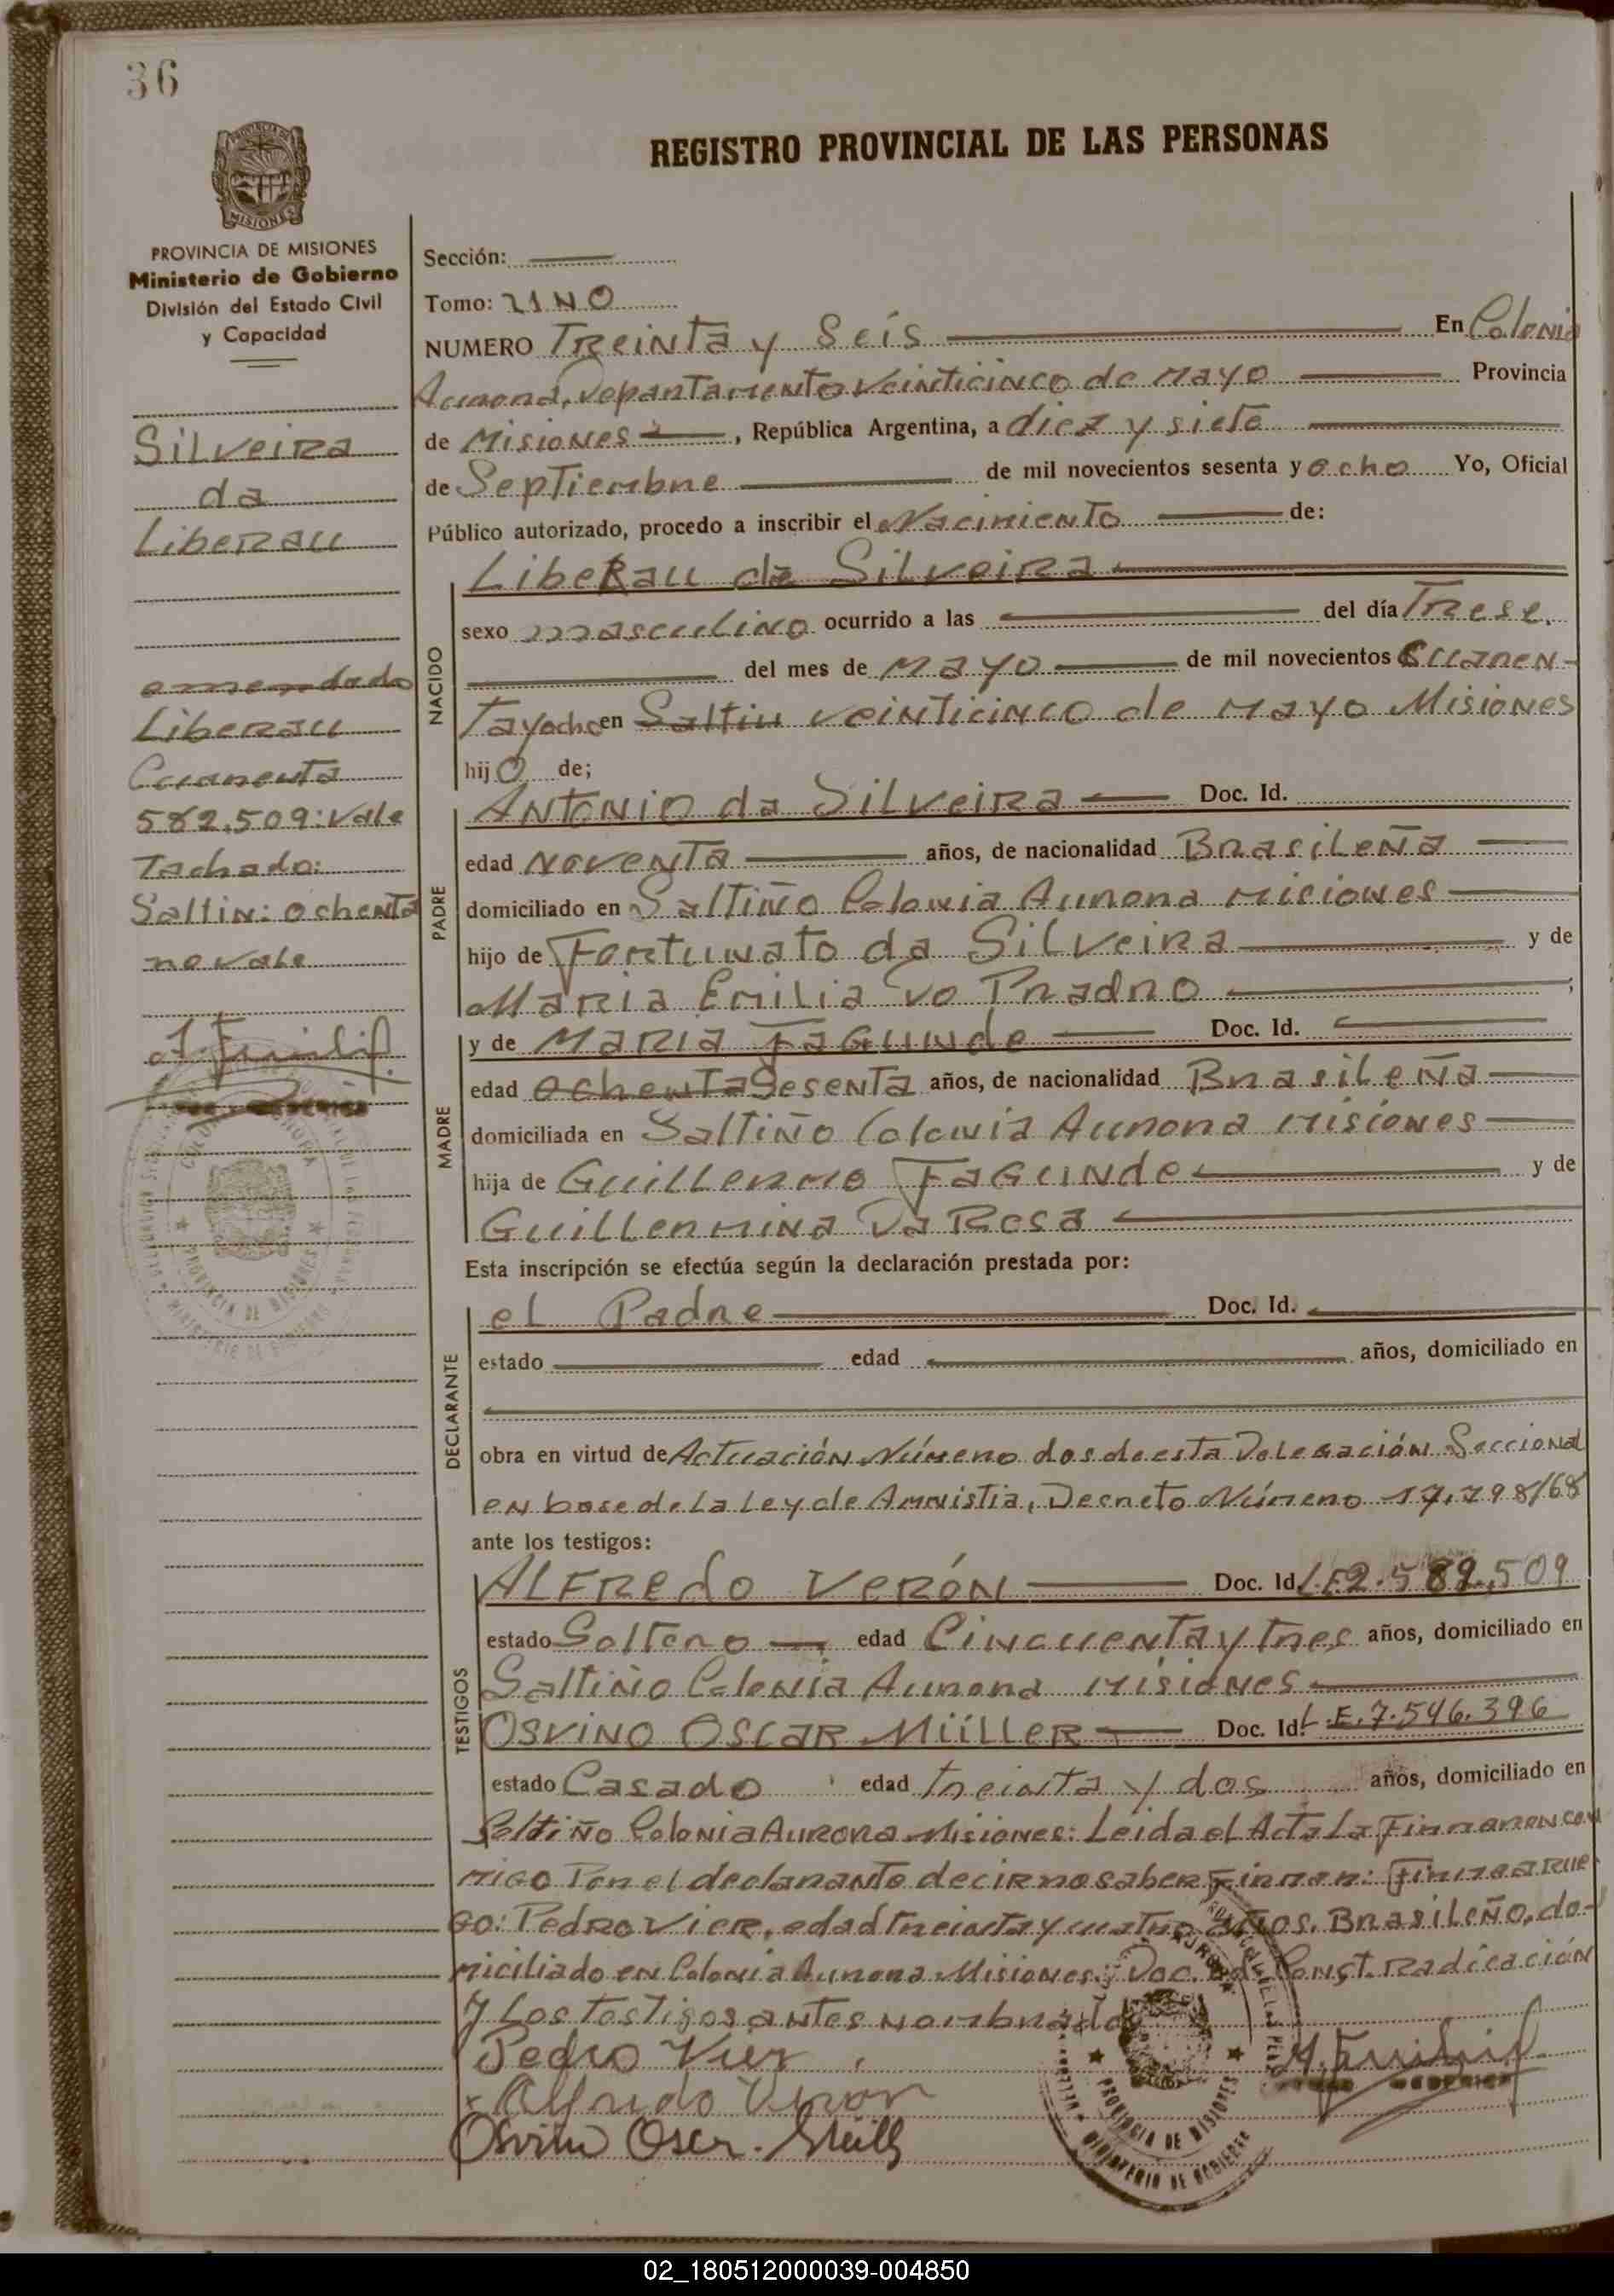 36
REGISTRO PROVINCIAL DE LAS PERSONAS
PROVINCIA DE
MISIONES
PROVINCIA DE MISIONES
Ministerio de Gobierno
División del Estado Civil
y Capacidad
Silveira
da
Liberau
enmendado
Liberau
Cuarenta
582.509: Vale
Tachado:
Saltin: ochenta
no vale
Sección:
Tomo: UNO
NUMERO Treinta y Seis En Colonia
Aurora, Departamento Veinticinco de Mayo Provincia
de Misiones, República Argentina, a diez y siete
de Septiembre de mil novecientos sesenta y ocho Yo, Oficial
Público autorizado, procedo a inscribir el Nacimiento de:
NACIDO
Liberau da Silveira
sexo masculino ocurrido a las del día Trese.
del mes de Mayo de mil novecientos Cuaren-
tayocho en Saltin Veinticinco de Mayo Misiones
hijo de;
PADRE
Antonio da Silveira Doc. Id.
edad Noventa años, de nacionalidad Brasileña
domiciliado en Saltiño Colonia Aurora Misiones
hijo de Fortunato da Silveira y de
Maria Emilia Do Pradro ;
MADRE
y de Maria Fagunde Doc. Id.
edad ochenta Sesenta años, de nacionalidad Brasileña
domiciliada en Saltiño Colonia Aurora Misiones
hija de Guillermo Fagunde y de
Guillermina Da Rosa
Esta inscripción se efectúa según la declaración prestada por:
DECLARANTE
el Padre Doc. Id.
estado edad años, domiciliado en
obra en virtud de Actuación Número dos de esta Delegación Seccional
en base de la Ley de Amnistia, Decreto Número 17.798/68
ante los testigos:
TESTIGOS
Alfredo Verón Doc. Id L.E 2.582.509
estado Soltero edad Cincuenta y tres años, domiciliado en
Saltiño Colonia Aurora Misiones
Osvino Oscar Müller Doc. Id. L.E. 7.546.396
estado Casado edad treinta y dos años, domiciliado en
Saltiño Colonia Aurora Misiones: Leida el Acta La Firmaron con
migo Por el declarante decir no saber Firmar: Firma a Rue
go: Pedro Vier, edad treinta y cuatro años, Brasileño, do-
miciliado en Colonia Aurora Misiones: Doc. Id. Const. Radicación
y Los testigos antes nombrados
Pedro Vier
Alfredo Veron
Osvino Oscar Müller
PROVINCIA DE MISIONES
MINISTERIO DE GOBIERNO
02_180512000039-004850